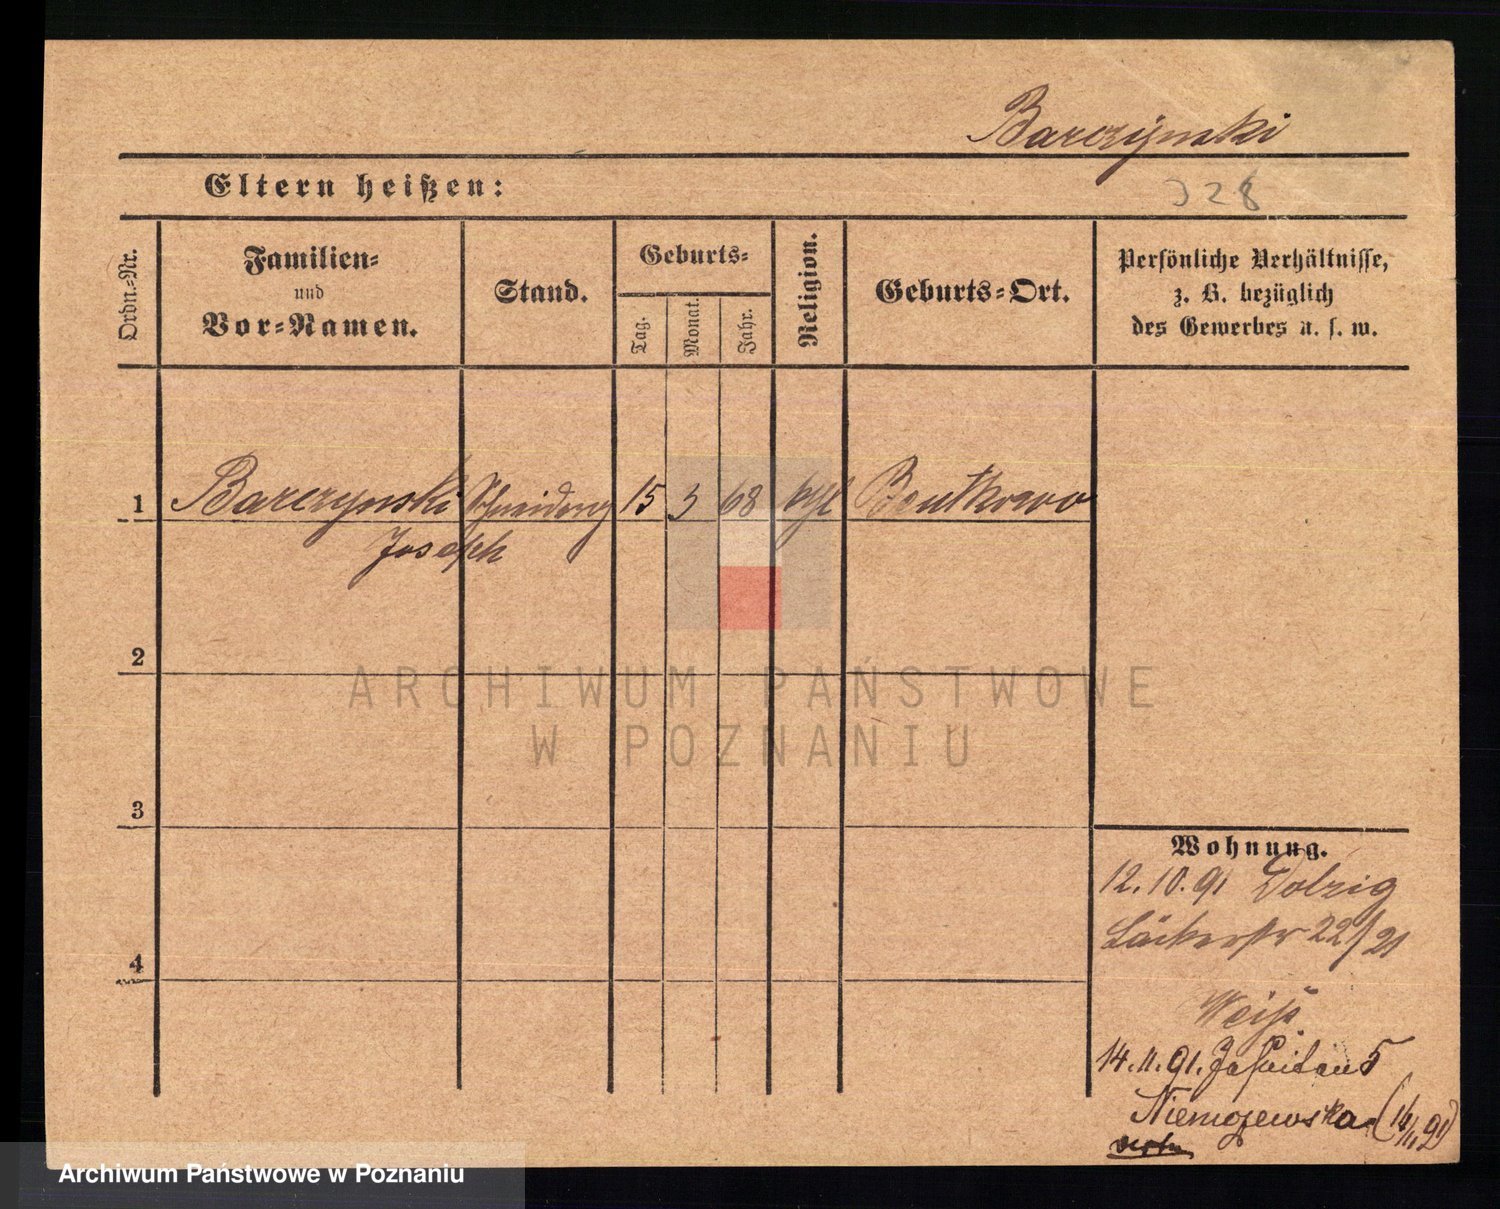 Barczynski
Eltern heißen:
328
Ordn.-Nr.
Familien-
und
Vor-Namen.
Stand.
Geburts-
Tag.
Monat.
Jahr.
Religion.
Geburts-Ort.
Persönliche Verhältnisse,
z. B. bezüglich
des Gewerbes u. s. w.
1 Barczynski Schneiderg 15 3 68 kath Bentkowo
Joseph
2
ARCHIWUM PAŃSTWOWE
W POZNANIU
3
Wohnung.
12. 10. 91 Dolzig
Bäckerstr 22/21
4
Weiß
14. 11. 91. Jesuiten 5
Niemojewska (14/11 91)
Archiwum Państwowe w Poznaniu